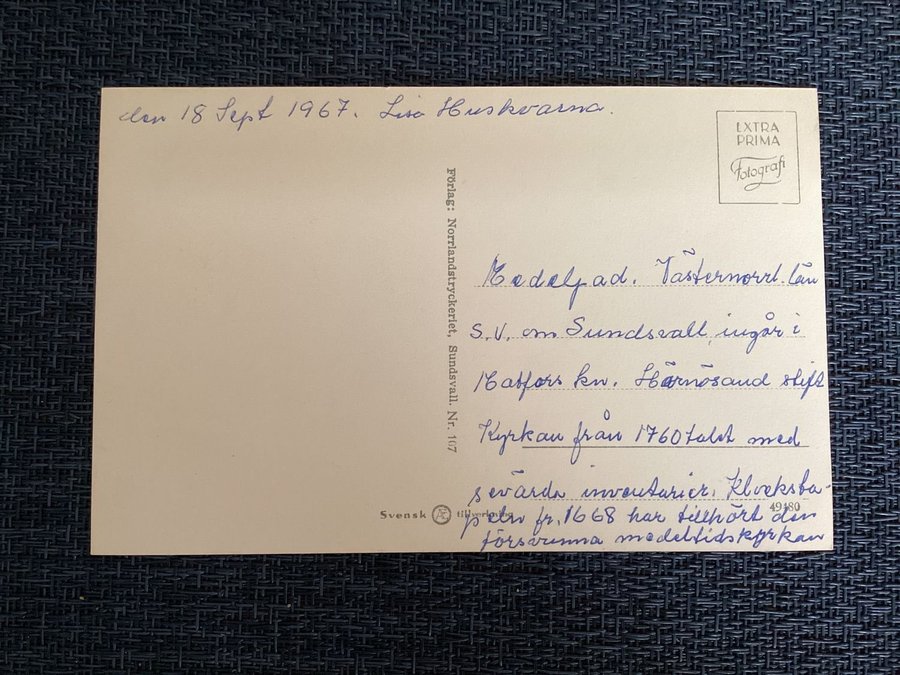 den 18 Sept 1967. Lisa Huskvarna.
EXTRA
PRIMA
Fotografi
Förlag: Norrlandstryckeriet, Sundsvall. Nr. 107
Medelpad. Västernorrl. län
S.V. om Sundsvall, ingår i
Matfors kn. Härnösand stift
Kyrkan från 1760talet med
sevärda inventarier. Klocksta-
peln fr. 1668 har tillhört den
försvunna medeltidskyrkan
Svensk tillverkning
49180